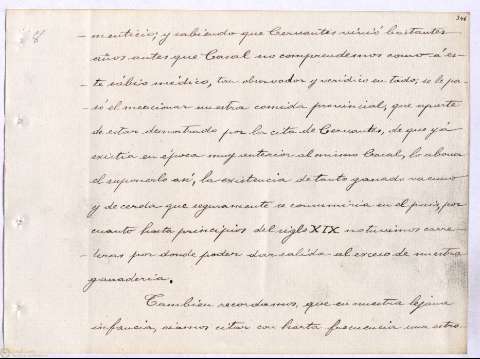 346
8
menticio; y sabiendo que Cervantes vivió bastantes
años antes que Casal no comprendemos como á es-
te sábio médico, tan observador y verídico en todo; se le pa-
só el mencionar nuestra comida provincial, que aparte
de estar demostrado por la cita de Cervantes, de que yá
existia en época muy anterior al mismo Casal, lo abona
el suponerlo así, la existencia de tanto ganado vacuno
y de cerda que seguramente se consumiria en el país, por
cuanto hasta principios del siglo XIX no tuvimos carre-
teras por donde poder dar salida al exceso de nuestra
ganaderia.
Tambien recordamos, que en nuestra lejana
infancia, oiamos citar con harta frecuencia una estro-